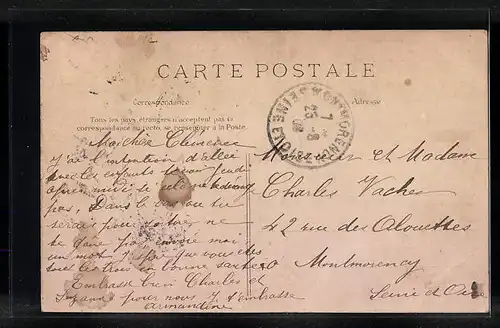 CARTE POSTALE
Correspondance
Adresse
Tous les pays étrangers n'acceptent pas la
correspondance au recto, se renseigner à la Poste.
MONTMORENCY
SEINE ET OISE
7
25 -8
08
Ma Chère Clemence
J'ai l'intention d'aller
avec les enfants te voir jeudi
après midi si cela ne te derange
pas, Dans le cas ou tu
serais pour sortir ne
te gêne pas envoie moi
un mot, J'espère que vous êtes
tous les trois en bonne santé
Embrasse bien Charles et
pour nous J. t'embrasse
armandine
Monsieur et Madame
Charles Vacher
42 rue des Alouettes
Montmorency
Seine et Oise